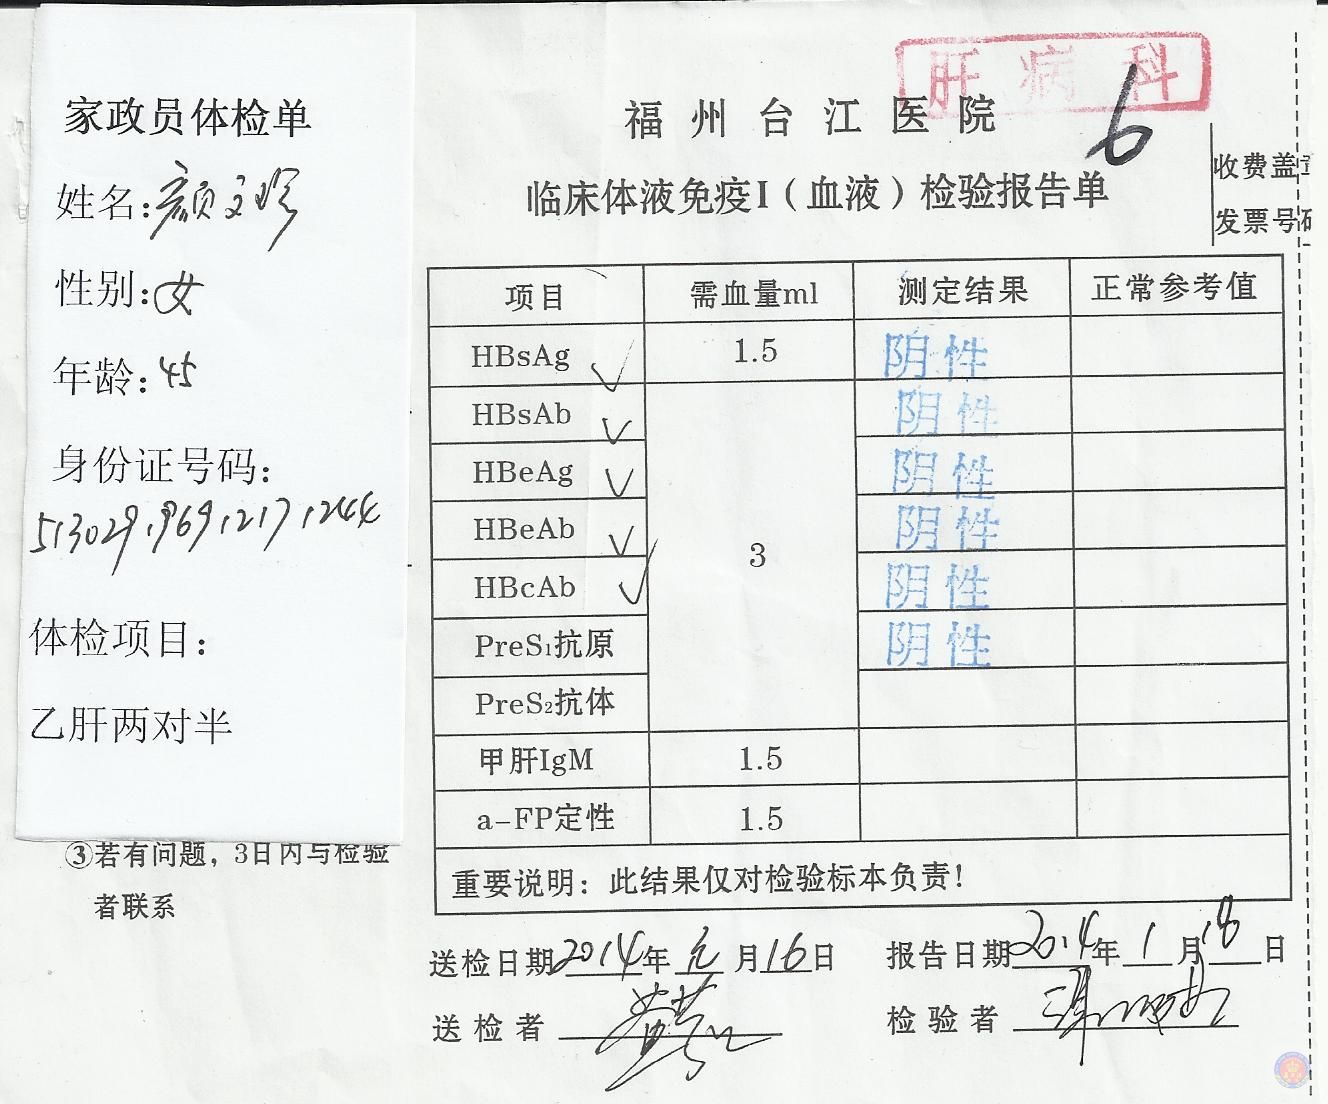 家政员体检单
姓名:颜文珍
性别:女
年龄:45
身份证号码:
513029196912171244
体检项目:
乙肝两对半
③若有问题，3日内与检验
者联系
肝病科
6
福州台江医院
临床体液免疫I（血液）检验报告单
收费盖章
发票号码
项目 需血量ml 测定结果 正常参考值
HBsAg ✓ 1.5 阴性
HBsAb ✓ 阴性
HBeAg ✓ 阴性
HBeAb ✓ 3 阴性
HBcAb ✓ 阴性
PreS₁抗原 阴性
PreS₂抗体
甲肝IgM 1.5
a-FP定性 1.5
重要说明：此结果仅对检验标本负责！
送检日期2014年元月16日 报告日期2014年1月18日
送检者 检验者